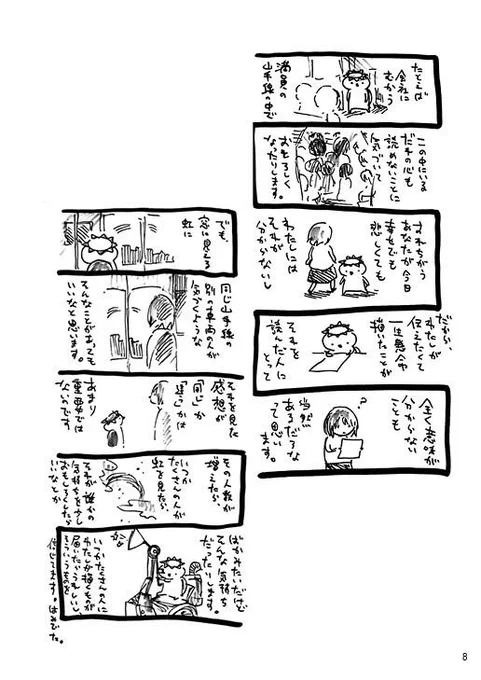 たとえば
会社に
むかう
満員の
山手線の中で
この中にいる
だれの心も
読めないことに
気づいて
おもしろく
なったりします。
すれちがう
あなたが今日
幸せでも
悲しくても
わたしには
それが
分からないし
だから、
わたしが
伝えたくて
一生懸命
描いたことが
それを
読んだ人に
とって
全く意味が
分からない
ことも
?
当然
あるだろな
って思い
ます。
でも、
窓に見える
虹に
同じ山手線の
別の車両の人が
気づくような
そんなことがあっても
いいなと思います。
それを見た
感想が
「同じ」か
「違う」かは
あまり
重要では
ないです
その人数が
増えたら、
いつか
たくさんの人が
虹を見たら、
それが誰かの
気持ちを少し
おもしろくしたら
いいなとか
ばかみたいだけど
そんな気持ち
だったりします。
いつかたくさんの人に
わたしが描くものが
届いたらうれしいし、
そういうものを
信じてます。はみでた。
8